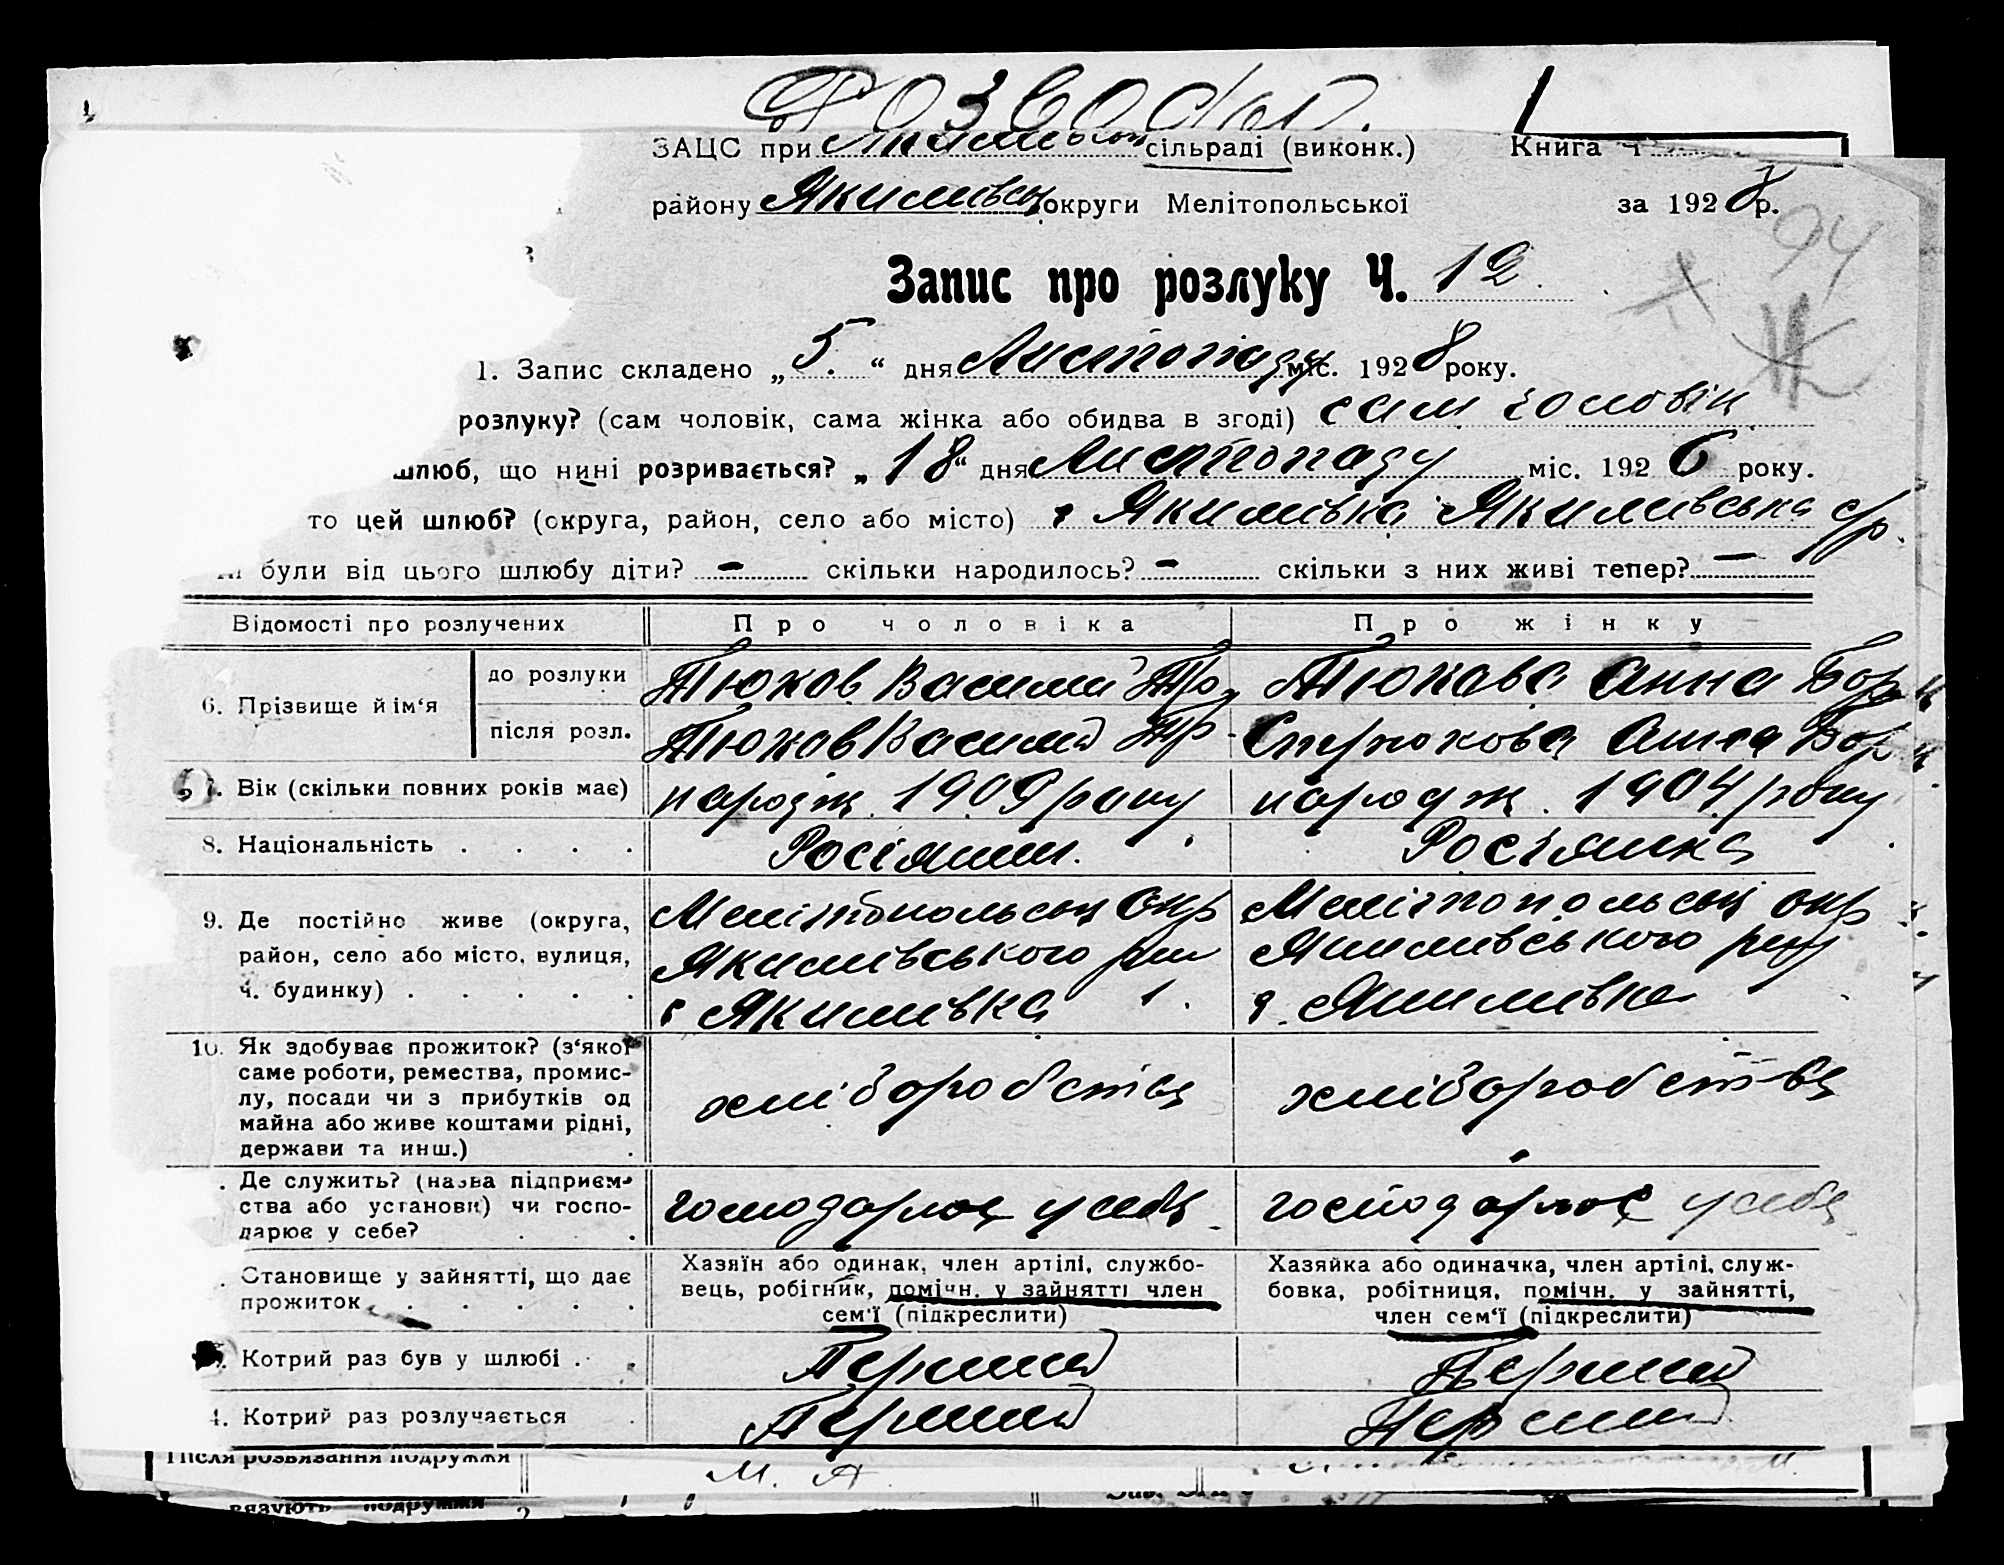 Розводы.
ЗАЦС при сільраді (виконк.) Книга Ч
району Якимівськ округи Мелітопольської за 1928 р.
94
Запис про розлуку Ч. 12
1. Запис складено „5.“ дня Листопаду міс. 1928 року.
розлуку? (сам чоловік, сама жінка або обидва в згоді) сам чоловік
шлюб, що нині розривається? „18“ дня Листопаду міс. 1926 року.
то цей шлюб? (округа, район, село або місто) с Якимівка Якимівська с/р.
були від цього шлюбу діти? - скільки народилось? - скільки з них живі тепер? -
Відомості про розлучених Про чоловіка Про жінку
6. Прізвище й ім‘я до розлуки Тюков Василий Тр. Тюкова Анна Бор
після розл. Тюков Василий Тр. Стрюкова Анна Бор
7. Вік (скільки повних років має) народж. 1909 року народж. 1904 року
8. Національність . . . . Росіянин. Росіянка
9. Де постійно живе (округа, Мелітопольськ окр Мелітопольськ окр
район, село або місто, вулиця, Якимівського рну Якимівського рну
ч. будинку) . . . . . с Якимівка 1. с. Якимівка
10. Як здобуває прожиток? (з‘якої
саме роботи, ремества, промис-
лу, посади чи з прибутків од хліборобство хліборобство
майна або живе коштами рідні,
держави та инш.) .
. Де служить? (назва підприєм-
ства або установи) чи госпо- господарює у себе господарює у себе
дарює у себе? . . .
. Становище у зайнятті, що дає Хазяїн або одинак, член артілі, службо- Хазяйка або одиначка, член артілі, служ-
прожиток . . . . . вець, робітник, помічн. у зайнятті член бовка, робітниця, помічн. у зайнятті,
сем‘ї (підкреслити) член сем‘ї (підкреслити)
. Котрий раз був у шлюбі . . Перший Перший
4. Котрий раз розлучається . Перший Перший
Після розвязання подружжя
М. А М.
вязують подружжя